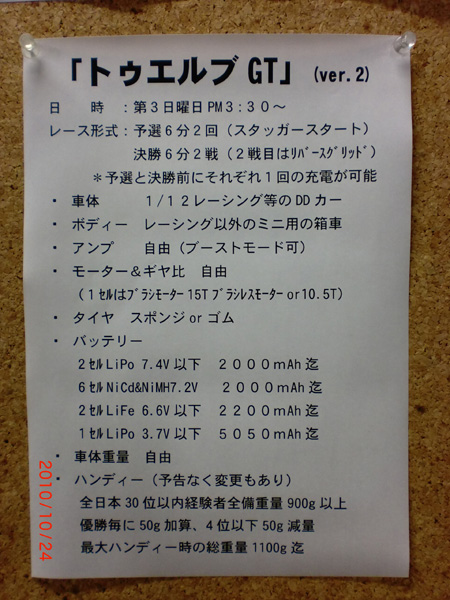 「トゥエルブGT」 (ver.2)
日　時　：第３日曜日PM３：３０～
レース形式：予選６分２回（スタッガースタート）
決勝６分２戦（２戦目はﾘﾊﾞｰｽｸﾞﾘｯﾄﾞ）
＊予選と決勝前にそれぞれ１回の充電が可能
・ 車体　１/１２レーシング等のDDカー
・ ボディー　レーシング以外のミニ用の箱車
・ アンプ　自由（ブーストモード可）
・ モーター＆ギヤ比　自由
（１ｾﾙはﾌﾞﾗｼﾓｰﾀｰ15Tﾌﾞﾗｼﾚｽﾓｰﾀｰor10.5T）
・ タイヤ　スポンジorゴム
・ バッテリー
２ｾﾙLiPo 7.4V以下　２０００mAh迄
６ｾﾙNiCd&NiMH7.2V　２０００mAh迄
２ｾﾙLiFe 6.6V以下　２２００mAh迄
１ｾﾙLiPo 3.7V以下　５０５０mAh迄
・ 車体重量　自由
・ ハンディー（予告なく変更もあり）
全日本30位以内経験者全備重量900g以上
優勝毎に50g加算、４位以下50g減量
最大ハンディー時の総重量1100g迄
2010/10/24